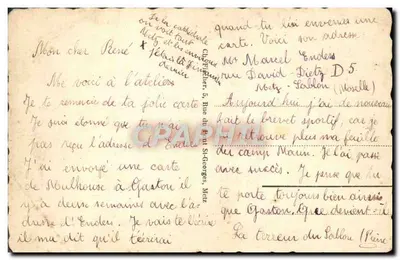 Mon cher René
Me voici à l'atelier
Je te remercie de la jolie carte
Je suis étonné que tu n'ai
pas reçu l'adresse d'Enders
J'ai envoyé une carte
de Mulhouse à Gaston il
y a deux semaines avec l'a-
dresse d'Enders. Je vais te l'écrire
il m'a dit qu'il t'écrirai
De la cathédrale
on voit tout
Metz et les environs
Ch. Pircher, 5, Rue du Pont St-Georges, Metz
quand tu lui enverras une
carte. Voici son adresse.
Mr Marcel Enders
rue David-Dietz D 5
Metz-Sablon (Moselle)
Aujourd'hui j'ai de nouveau
fait le brevet sportif, car je
ne retrouve plus ma feuille
des camp Marin. Je l'ai passé
avec succès. Je pense que tu
te porte toujours bien ainsi
que Gaston. Que devient-il
La terreur du Sablon